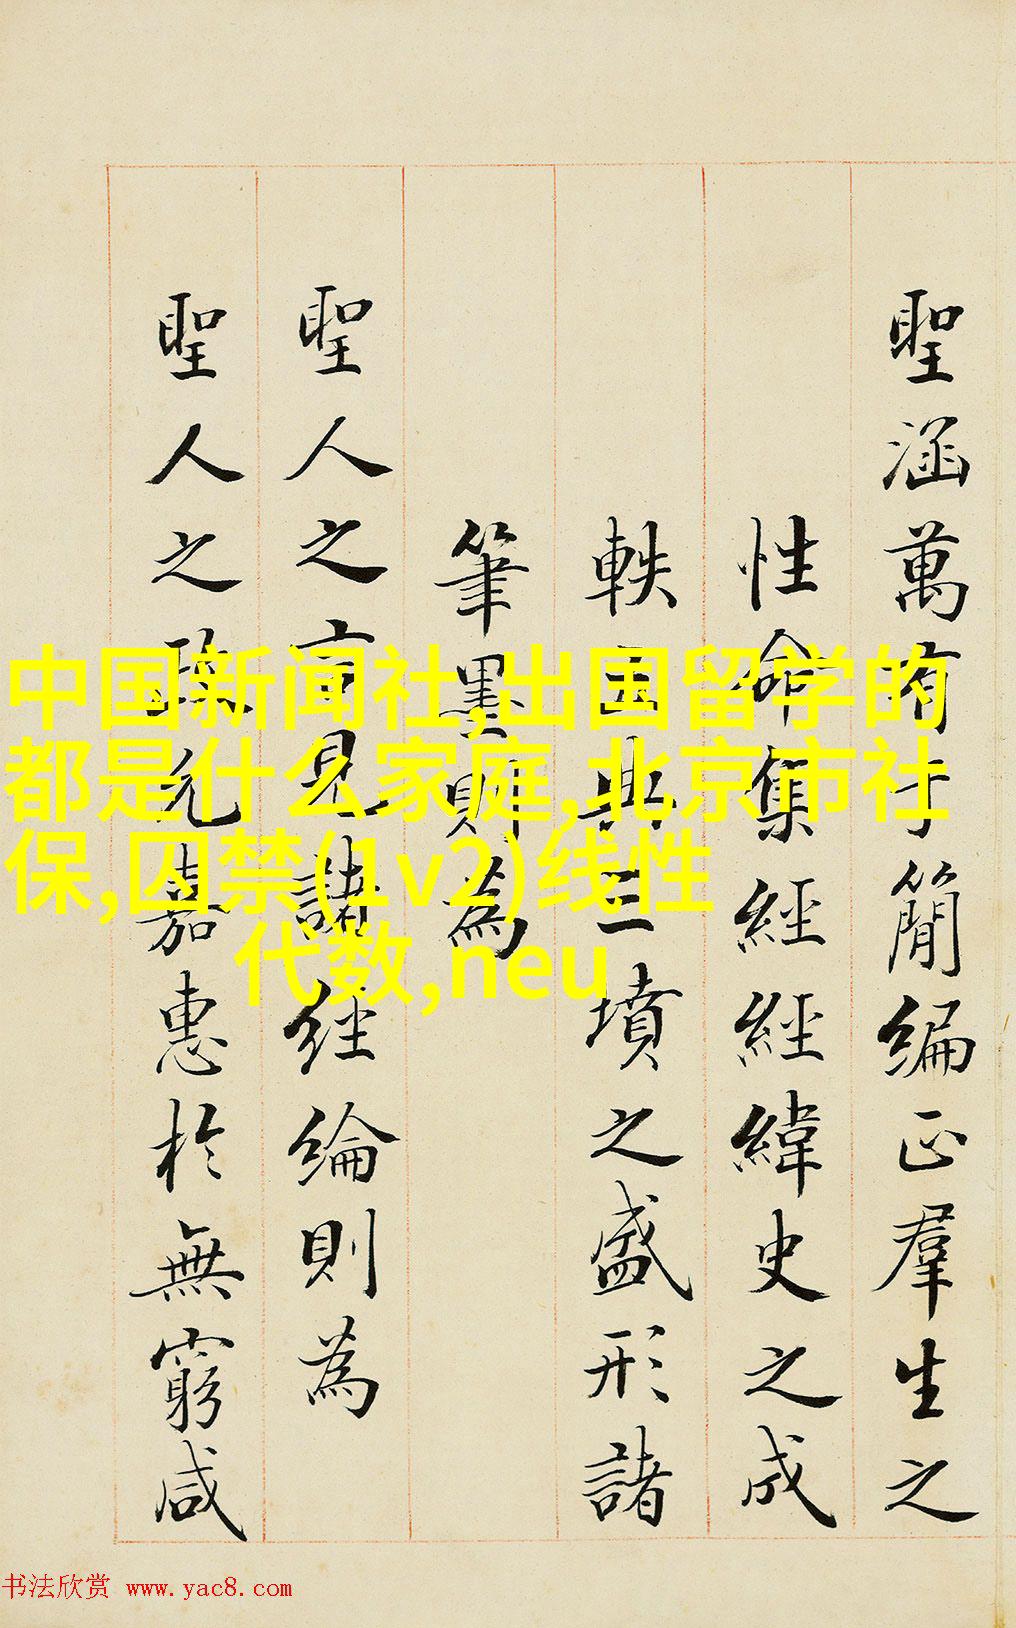 聖涵萬有于簡編正羣生之
性命集經經緯史之成
軼五典三墳之盛形諸
筆墨則為
聖人之言見諸經綸則為
聖人之允嘉惠於無窮咸
中国新闻社,出国留学的
都是什么家庭,北京市社
保,囚禁(1v2)线性
代数,neu
书法欣赏 www.yac8.com